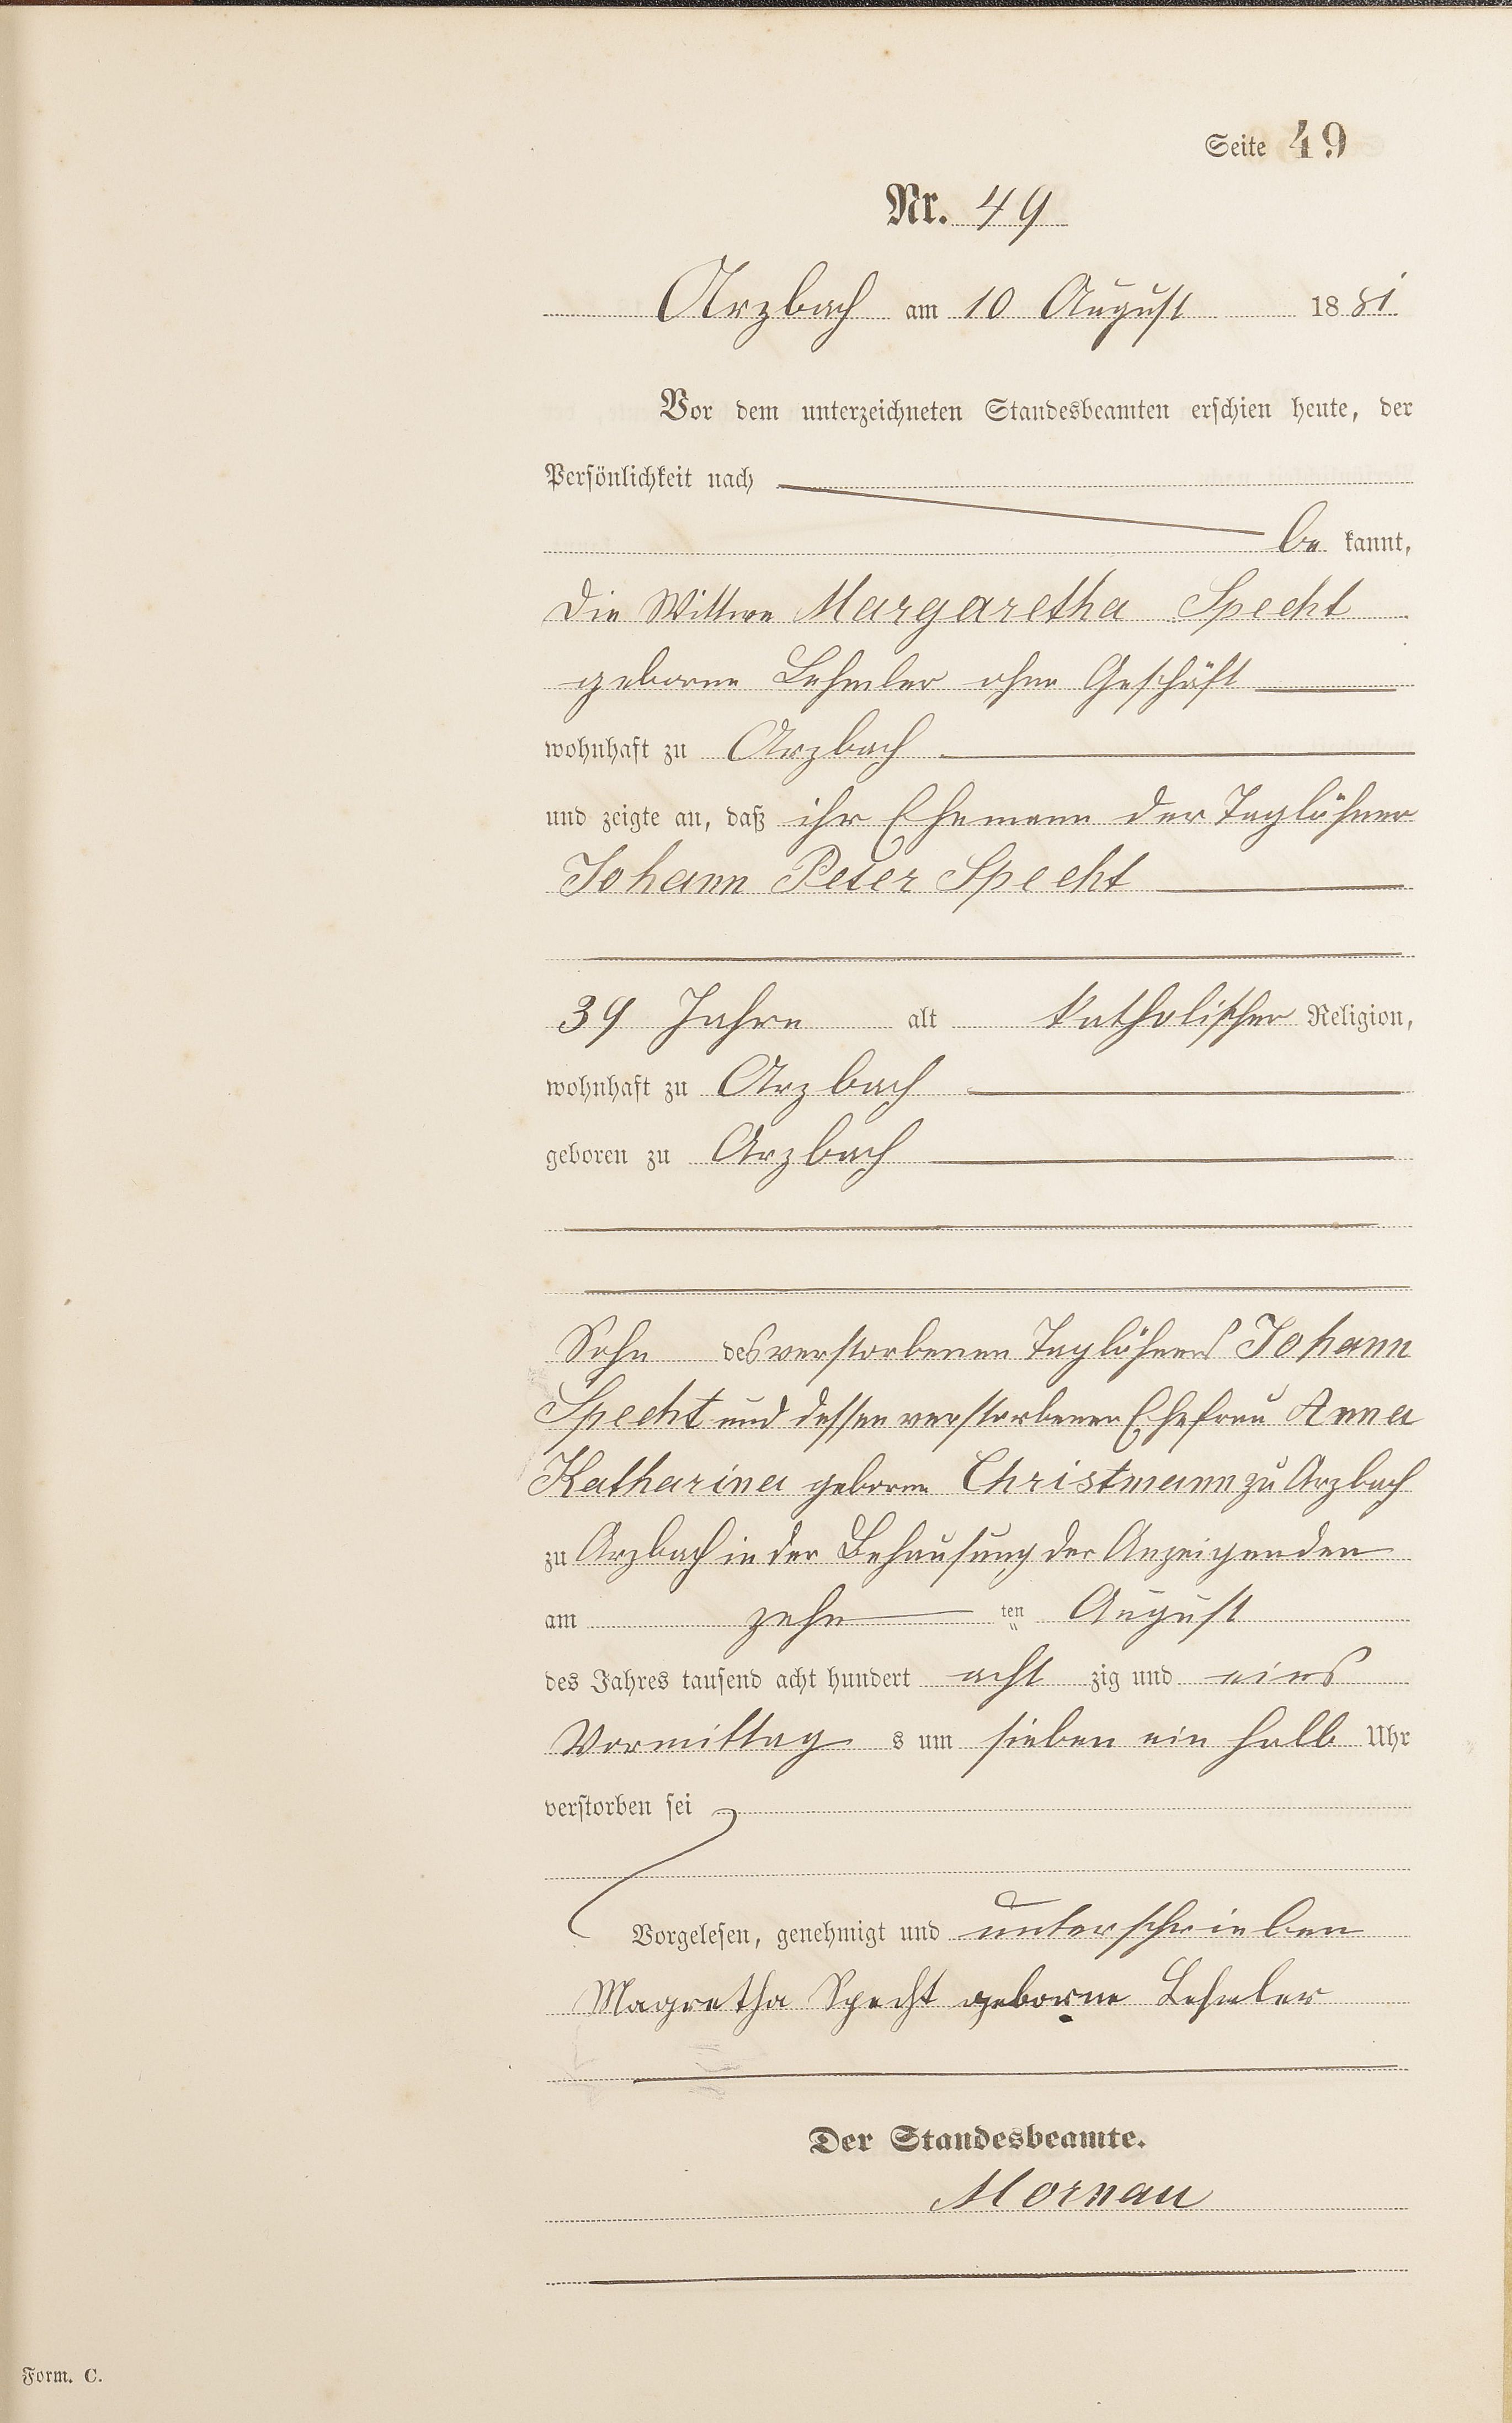 Seite 49
Nr. 49
Arzbach am 10 August 1881
Vor dem unterzeichneten Standesbeamten erschien heute, der
Persönlichkeit nach
be kannt,
die Wittwe Margaretha Specht
geborne Lehmler ohne Geschäft
wohnhaft zu Arzbach
und zeigte an, daß ihr Ehemann der Taglöhner
Johann Peter Specht
39 Jahre alt katholischer Religion,
wohnhaft zu Arzbach
geboren zu Arzbach
Sohn des verstorbenen Taglöhners Johann
Specht und dessen verstorbener Ehefrau Anna
Katharina geborne Christmann zu Arzbach
zu Arzbach in der Behausung der Anzeigenden
am zehn ten August
des Jahres tausend acht hundert acht zig und eins
Vormittag s um sieben ein halb Uhr
verstorben sei
Vorgelesen, genehmigt und unterschrieben
Magretha Specht geborne Lehmler
Der Standesbeamte.
Mornau
Form. C.